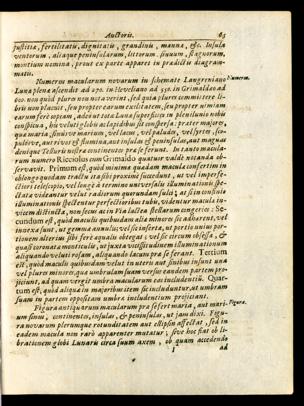 Auctoris. 65
justitiæ, fertilitatis, dignitatis, grandinis, mannæ, &c. Insula
ventorum, aliaque peninsularum, littorum, sinuum, stagnorum,
montium nomina, prout ex parte apparet in prædictis diagram-
matis.
Numerus macularum novarum in schemate Langreniano Numerus.
Luna plena ascendit ad 270. in Heveliano ad 550. in Grimaldeo ad
600. non quid plures non nota verint, sed quia plures committere li-
bris non placuit, seu propter earum exilitatem, seu propter nimiam
earum ferè copiam, adeò ut tota Luna superficies in plenilunio nobis
conspicua, his velut globis ac lapidibus sit conspersa: præter majores,
quæ maria, sinusve marium, vel lacus, vel paludes, vel fretes, sco-
pulive, aut rivos est flumina, aut insulas & peninsulas, aut maguas
denique Telluris nostra continentes præ se ferunt. In tanto macula-
rum numero Ricciolus cum Grimaldo quatuor valdè notanda ob-
servavit. Primum est, quòd minima quædam macula confertim in
oblongo quodam tractu ita sibi proximè succedunt, ut vel imperfe-
ctiori telescopio, vel longè à termino universalis illuminationis spe-
ctata videantur velut radiorum quorundam sulci; at si in confinio
illuminationis spectentur perfectioribus tubis, videntur macula in-
vicem distinctæ, non secus ac in Via lactea stellarum congeries: Se-
cundum est, quod maculis quibusdam alia minores sic adhærent, vel
innexæ sunt, ut gemmæ annulus; vel sic insertæ, ut portio unius por-
tionem alterius sibi ferè æqualis obtegat; vel sic circum obsessæ, &
quasi coronatæ monticulis, ut juxta vicissitudinem illuminationum
aliquando veluti rosam, aliquando lacum præ se ferant. Tertium
est, quòd maculis quibusdam velut in uteris aut sinibus insunt una
vel plures minores, quæ umbrulam suam versus eandem partem pro-
jiciunt, ad quam vergit umbra macularum eas includentium. Quar-
tum est, quòd aliquæ in majoribus item sic includuntur, ut umbram
suam in partem oppositam umbræ includentium projiciant.
Figura antiquarum macularum præ se fert maria, aut mari- Figura.
um sinus, continentes, insulas, & peninsulas, ut jam dixi. Figu-
ra novarum plerunque rotunditatem aut ellipsin affectat, sed in
eadem macula non rarò apparenter mutatur; sive hoc fiat ob li-
brationem globi Lunaris circa suum axem, ob quam accedendo
I ad